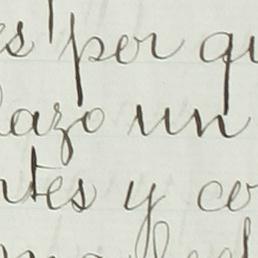 es por qu
lazo un
ntes y co